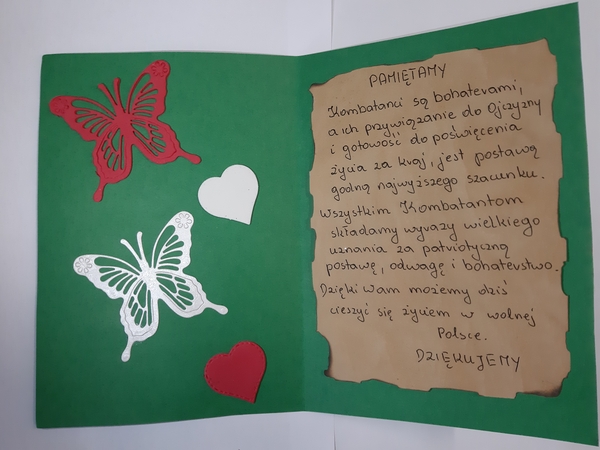 PAMIĘTAMY
Kombatanci są bohaterami,
a ich przywiązanie do Ojczyzny
i gotowość do poświęcenia
życia za kraj, jest postawą
godną najwyższego szacunku.
Wszystkim Kombatantom
składamy wyrazy wielkiego
uznania za patriotyczną
postawę, odwagę i bohaterstwo.
Dzięki Wam możemy dziś
cieszyć się życiem w wolnej
Polsce.
DZIĘKUJEMY